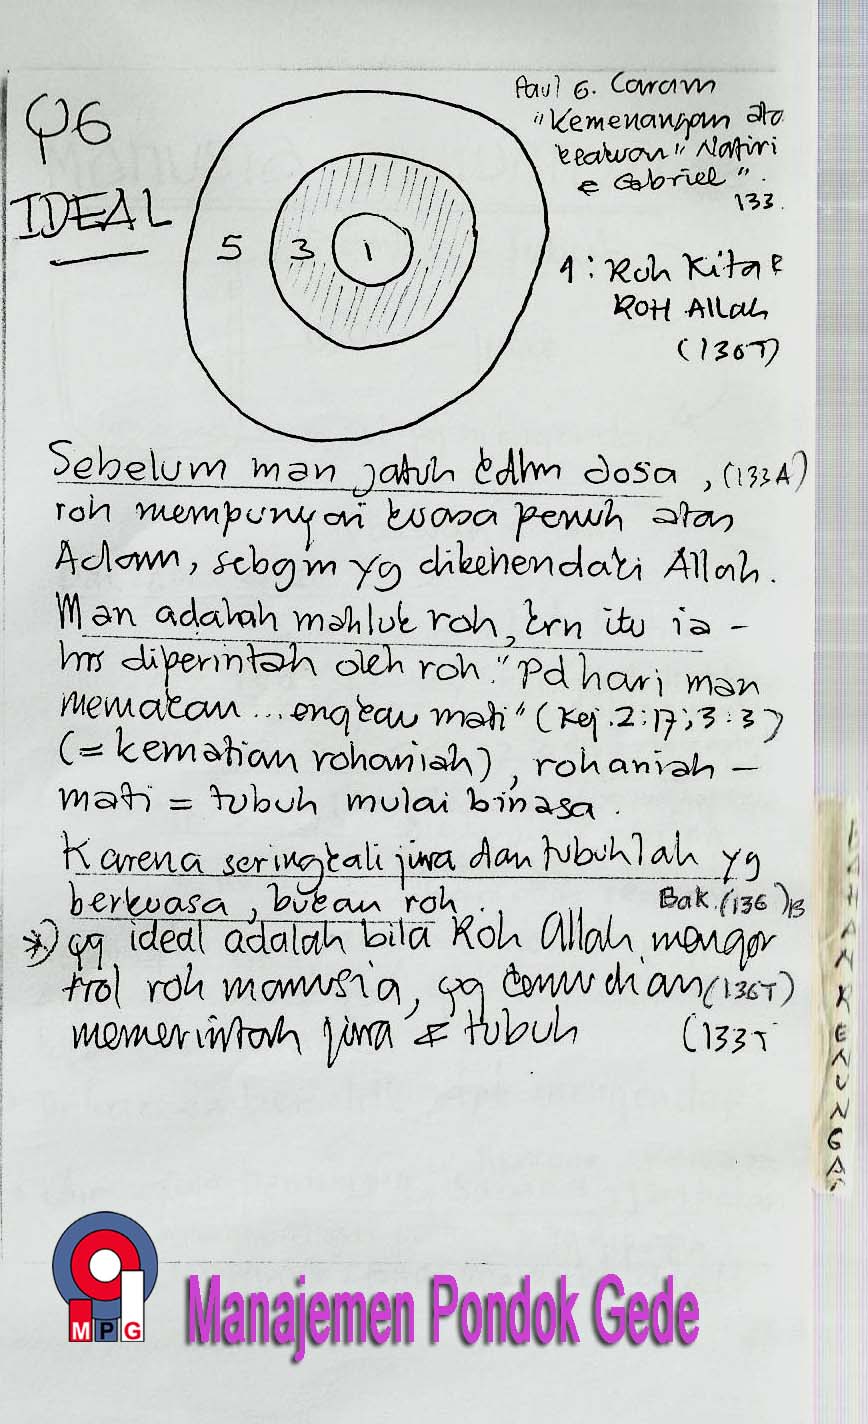 φ6
IDEAL
5 3 1
Paul G. Caram
"Kemenangan ata
keakuan" Nafiri
& Gabriel".
133.
1: Roh Kita &
ROH Allah
(136T)
Sebelum man jatuh kdlm dosa, (133A)
roh mempunyai kuasa penuh atas
Adam, sebgm yg dikehendaki Allah.
Man adalah mahluk roh, krn itu ia -
hrs diperintah oleh roh. "Pd hari man
memakan... engkau mati" (Kej. 2:17; 3:3)
(= kematian rohaniah), rohaniah -
mati = tubuh mulai binasa.
Karena seringkali jiwa dan tubuhlah yg
berkuasa, bukan roh. Bak. (136)13
*) yg ideal adalah bila Roh Allah mengon
trol roh manusia, yg kemudian (136T)
memerintah jiwa & tubuh (133T
RENUNGA
MPG
Manajemen Pondok Gede